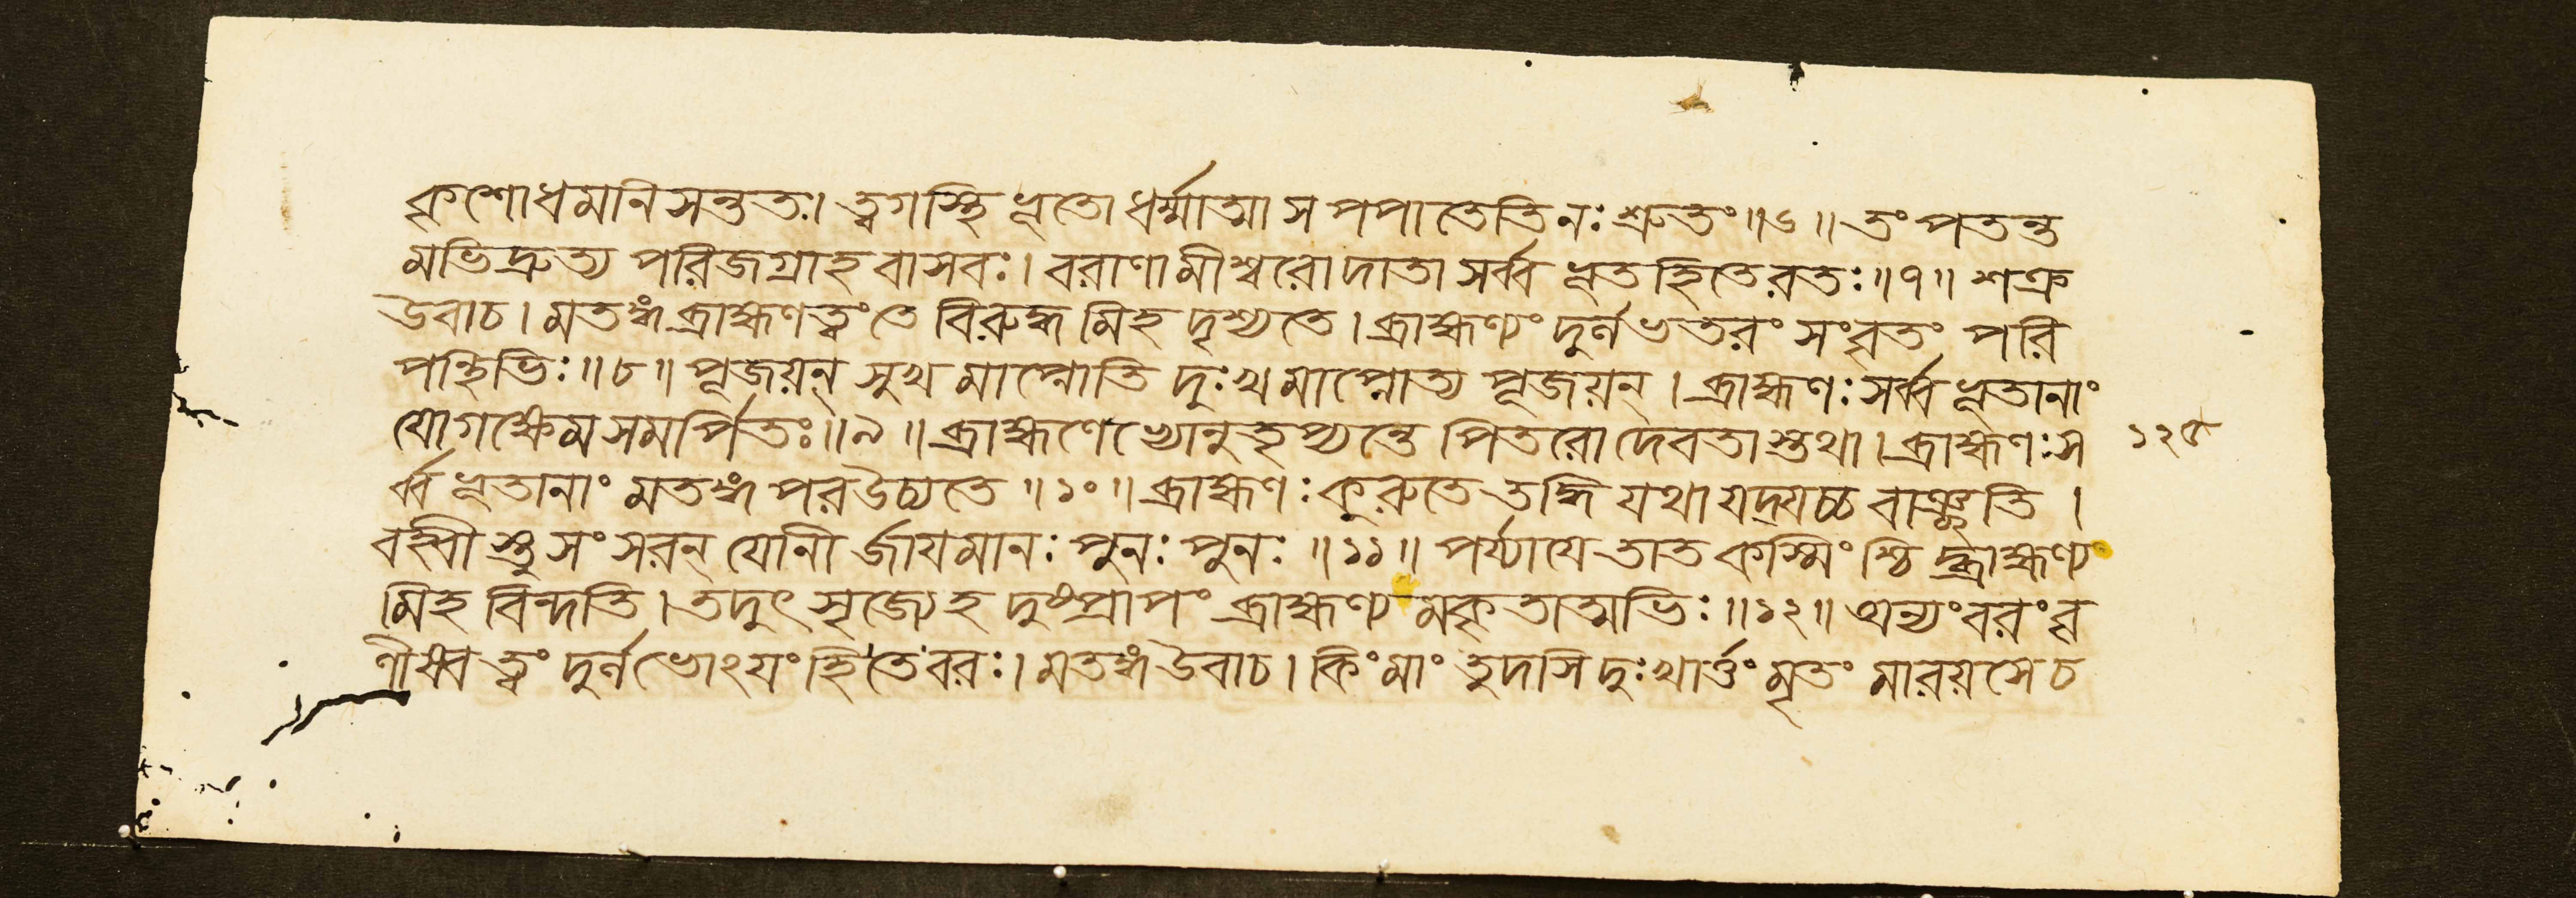 কৃশোধমানিসন্ততঃ। ত্বগস্থিভূতোধর্ম্মাত্মাসপপাতেতিনঃশ্রুতং॥৬॥তংপতন্ত
মভিদ্রুত্য পরিজগ্রাহবাসবঃ। বরাণামীশ্বরোদাতাসর্ব্বভূতহিতেরতঃ॥৭॥ শক্র
উবাচ। মতঙ্গব্রাহ্মণত্বংতে বিরুদ্ধমিহদৃশ্যতে। ব্রাহ্মণ্যংদুর্লভতরং সংবৃতং পরি
পন্থিভিঃ॥৮॥ পূজয়ন্ সুখমাপ্নোতি দুঃখমাপ্নোত্যপূজয়ন্। ব্রাহ্মণঃসর্ব্বভূতানাং
যোগক্ষেমসমর্পিতঃ॥৯॥ব্রাহ্মণেভ্যোনুতৃপ্যন্তেপিতরোদেবতাস্তথা। ব্রাহ্মণঃস ১২৫
র্ব্বভূতানাং মতঙ্গপরউচ্যতে॥১০॥ব্রাহ্মণঃকুরুতেতদ্ধিযথাযদ্যচ্চবাঞ্ছতি।
বহ্বীস্তুসংসরন্ যোনীর্জাযমানঃ পুনঃ পুনঃ॥১১॥ পর্য্যাযেতাতকস্মিংশ্চিদ্ব্রাহ্মণ্য
মিহবিন্দতি। তদুৎসৃজ্যেহদুষ্প্রাপং ব্রাহ্মণ্যমকৃতাত্মভিঃ॥১২॥ অন্যংবরংবৃ
ণীষ্বত্বং দুর্লভোঽযংহিতেবরঃ। মতঙ্গউবাচ। কিংমাংতুদসিদুঃখার্ত্তংমৃতং মারয়সেচ